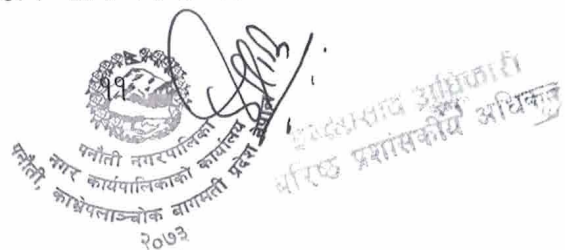 ११
पनौती नगरपालिका
नगर कार्यपालिकाको कार्यालय
पनौती, काभ्रेपलाञ्चोक बागमती प्रदेश नेपाल
२०७३
अधिकारी
वरिष्ठ प्रशासकीय अधिकृत